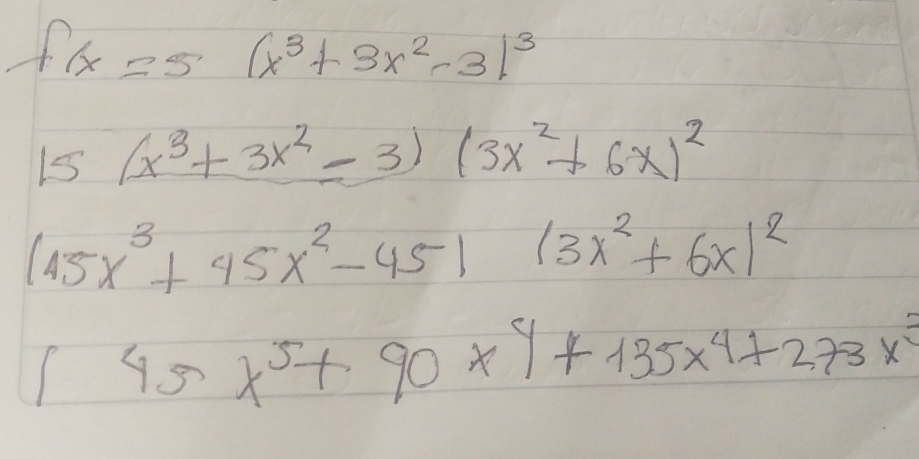 f(x = 5 (x³ + 3x² - 3)³
15 (x³ + 3x² - 3) (3x² + 6x)²
(15x³ + 45x² - 45) (3x² + 6x)²
( 45 x⁵ + 90 x⁴) + 135x⁴ + 273 x³